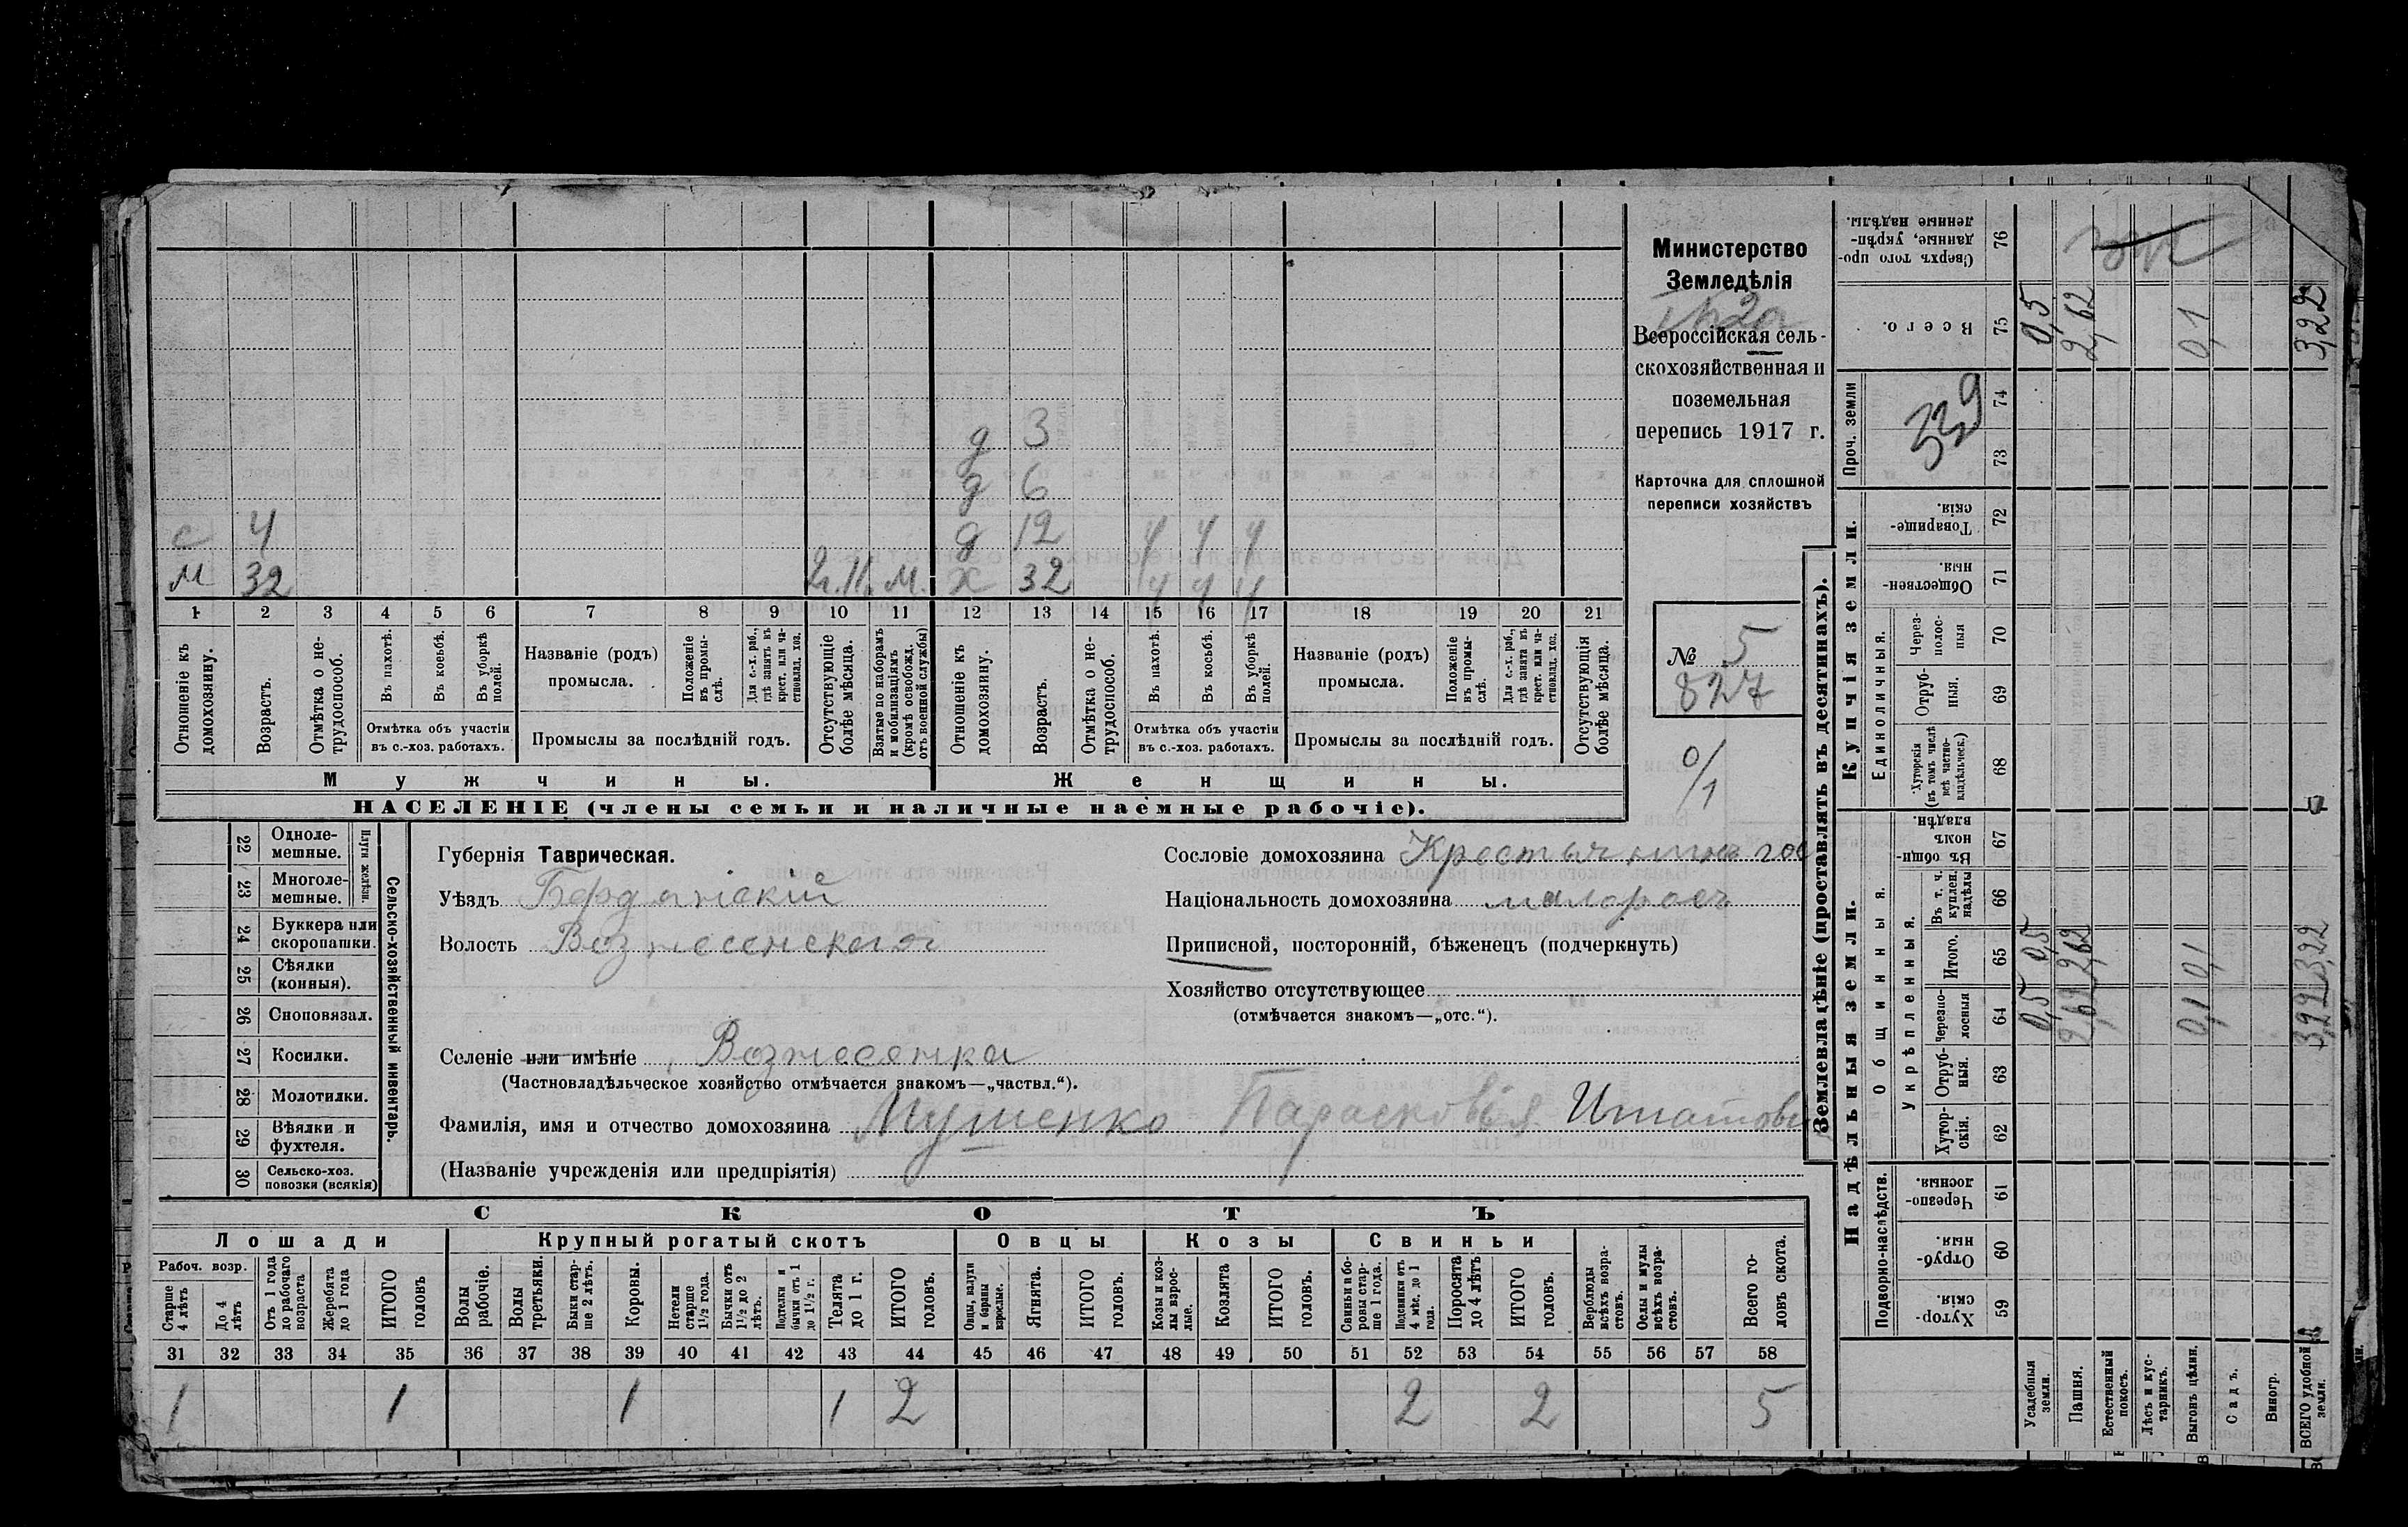 д 3
д 6
с 4 д 12 ч ч ч
м 32 2г. 11 м. ж 32 ч ч ч
1 2 3 4 5 6 7 8 9 10 11 12 13 14 15 16 17 18 19 20 21
Отношеніе къ домохозяину.
Возрастъ.
Отмѣтка о не-трудоспособ.
Въ пахотѣ.
Въ косьбѣ.
Въ уборкѣ полей.
Отмѣтка объ участіи
въ с.-хоз. работахъ.
Названіе (родъ)
промысла.
Положеніе въ промы-слѣ.
Для с.-х. раб., гдѣ занятъ въ крест. или ча-стновлад. хоз.
Промыслы за послѣдній годъ.
Отсутствующіе болѣе мѣсяца.
Взятые по наборамъ и мобилизаціямъ (кромѣ освобожд. отъ военной службы)
Отношеніе къ домохозяину.
Возрастъ.
Отмѣтка о не-трудоспособ.
Въ пахотѣ.
Въ косьбѣ.
Въ уборкѣ полей.
Отмѣтка объ участіи
въ с.-хоз. работахъ.
Названіе (родъ)
промысла.
Положеніе въ промы-слѣ.
Для с.-х. раб., гдѣ занята въ крест. или ча-стновлад. хоз.
Промыслы за послѣдній годъ.
Отсутствующія болѣе мѣсяца.
Мужчины.
Женщины.
НАСЕЛЕНІЕ (члены семьи и наличные наемные рабочіе).
Министерство
Земледѣлія
Всероссійская сель-
скохозяйственная и
поземельная
перепись 1917 г.
Карточка для сплошной
переписи хозяйствъ
№ 5
827
0/1
22 Одноле-мешные.
23 Многоле-мешные.
Плуги желѣзн.
24 Буккера или скоропашки.
25 Сѣялки (конныя).
26 Сноповязал.
27 Косилки.
28 Молотилки.
29 Вѣялки и фухтеля.
30 Сельско-хоз. повозки (всякія)
Сельско-хозяйственный инвентарь.
Губернія Таврическая.
Уѣздъ Бердянскій
Волость Вознесенская
Селеніе или имѣніе Вознесенка
(Частновладѣльческое хозяйство отмѣчается знакомъ—„частвл.“).
Фамилія, имя и отчество домохозяина Мушенко Парасковія
(Названіе учрежденія или предпріятія)
Сословіе домохозяина Крестьянинъ
Національность домохозяина малоросъ
Приписной, посторонній, бѣженецъ (подчеркнуть)
Хозяйство отсутствующее
(отмѣчается знакомъ—„отс.“).
СКОТЪ
Лошади
Крупный рогатый скотъ
Овцы
Козы
Свиньи
Рабоч. возр.
Старше 4 лѣтъ
До 4 лѣтъ
Отъ 1 года до рабочаго возраста
Жеребята до 1 года
ИТОГО головъ
Волы рабочіе.
Волы третьяки.
Быки стар-ше 2 лѣтъ.
Коровы.
Нетели старше 1½ года.
Бычки отъ 1½ до 2 лѣтъ.
Подтелки и бычки отъ 1 до 1½ г.
Телята до 1 г.
ИТОГО головъ.
Овцы, валухи и бараны взрослые.
Ягнята.
ИТОГО головъ.
Козы и коз-лы взрос-лые.
Козлята
ИТОГО головъ.
Свиньи и бо-ровы стар-ше 1 года.
Подсвинки отъ 4 мѣс. до 1 года.
Поросята до 4 лѣтъ
ИТОГО головъ.
Верблюды всѣхъ возра-стовъ.
Ослы и мулы всѣхъ возра-стовъ.
Всего го-ловъ скота.
31 32 33 34 35 36 37 38 39 40 41 42 43 44 45 46 47 48 49 50 51 52 53 54 55 56 57 58
1 1 1 1 2 2 2 5
Землевладѣніе (проставлять въ десятинахъ).
Надѣльныя земли.
Купчія земли.
Проч. земли
Подворно-наслѣдств.
Общинныя.
Укрѣпленныя.
Единоличныя.
Сверхъ того про-данные, укрѣп-ленные надѣлы. 76
Всего. 75 0,5 2,62 0,1 3,22
74
73
339
Товарище-скія. 72
Обществен-ныя 71
Через-полос-ныя 70
Отруб-ныя. 69
Хуторскія (въ томъ числѣ всѣ частно-владѣльческ.) 68
Въ общи-номъ владѣн. 67
Въ т. ч. куплен. надѣлы 66
Итого. 65 0,5 2,62 0,1 3,22
Черезпо-лосныя 64 0,5 2,62 0,1 3,22
Отруб-ныя. 63
Хутор-скія. 62
Черезпо-лосныя. 61
Отруб-ныя. 60
Хутор-скія. 59
Усадебныя земли.
Пашня.
Естественный покосъ.
Лѣсъ и кус-тарникъ.
Выгонъ цѣлин.
Садъ.
Виногр.
ВСЕГО удобной земли.